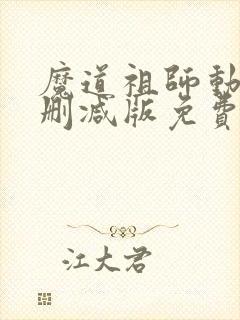 魔道祖師動
刪減版免費
江大君